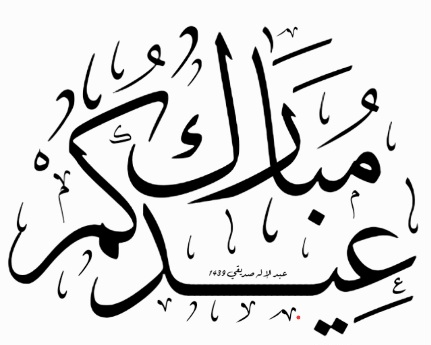 عيدكم مبارك
عبد الإله صديقي 1439